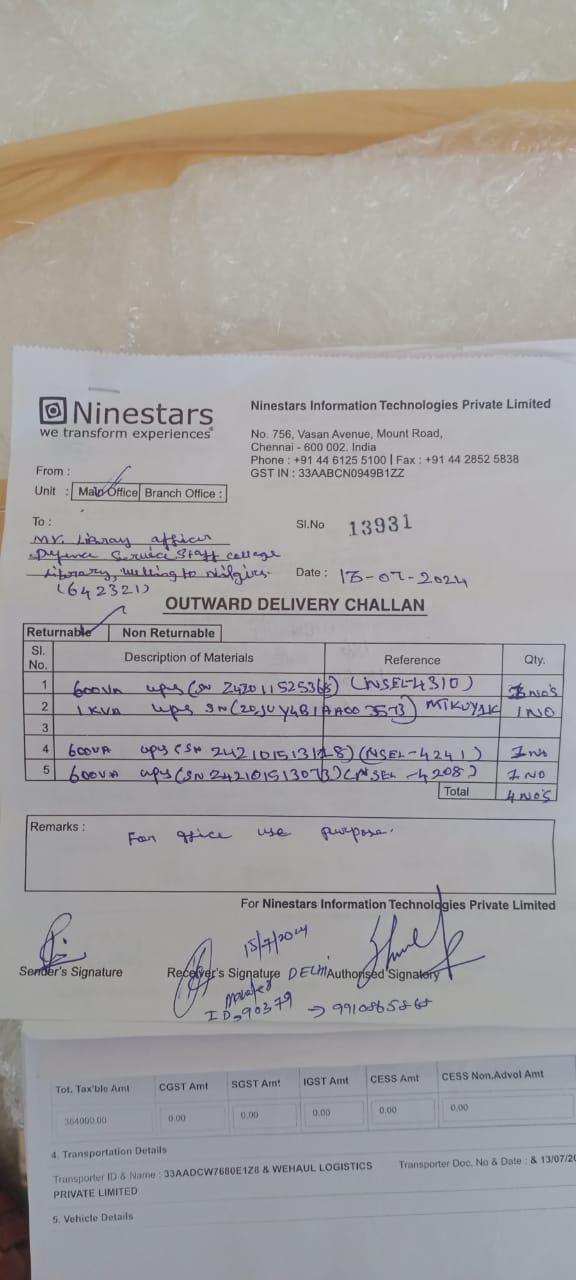 Ninestars
we transform experiences
Ninestars Information Technologies Private Limited
No. 756, Vasan Avenue, Mount Road,
Chennai - 600 002. India
Phone : +91 44 6125 5100 | Fax : +91 44 2852 5838
GST IN : 33AABCN0949B1ZZ
From :
Unit : Main Office Branch Office :
To :
Mr. Library officer
Defence Service Staff college
Library, Welling to Nilgiris.
(642321)
Sl.No 13931
Date : 13-07-2024
OUTWARD DELIVERY CHALLAN
Returnable Non Returnable
Sl. No. Description of Materials Reference Qty.
1 600VA ups (SN 242011525365) (NSEL-4310) NO'S
2 1KVA ups SN (20JUY4B1AA003573) 1 NO
3
4 600VA ups (SN 242101513118) (NSEL-4241) 1 NO
5 600VA ups (SN 242101513073) (NSEL-4208) 1 NO
Total 4 NO'S
Remarks : For office use purpose.
For Ninestars Information Technologies Private Limited
15/7/2024
Sender's Signature Receiver's Signature DELHI Authorised Signatory
ID 90379
Tot. Tax'ble Amt CGST Amt SGST Amt IGST Amt CESS Amt CESS Non.Advol Amt
364000.00 0.00 0.00 0.00 0.00 0.00
4. Transportation Details
Transporter ID & Name : 33AADCW7680E1Z8 & WEHAUL LOGISTICS PRIVATE LIMITED
Transporter Doc. No & Date : & 13/07/20
5. Vehicle Details